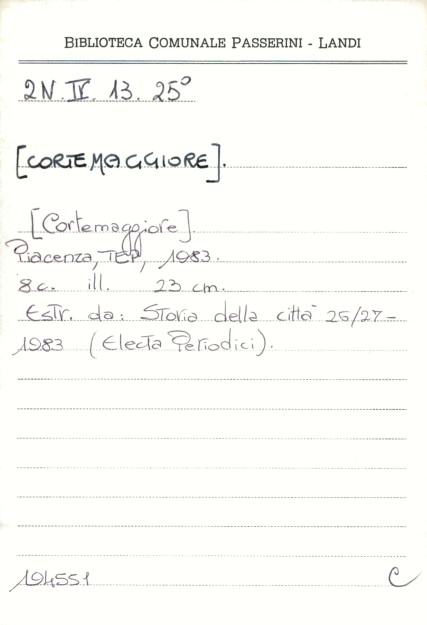 BIBLIOTECA COMUNALE PASSERINI - LANDI
2N.IV. 13. 25°
[CORTEMAGGIORE].
[Cortemaggiore].
Piacenza, TEP, 1983.
8 c. ill. 23 cm.
Estr. da: Storia della città 26/27-
1983 (Electa Periodici).
194551 C